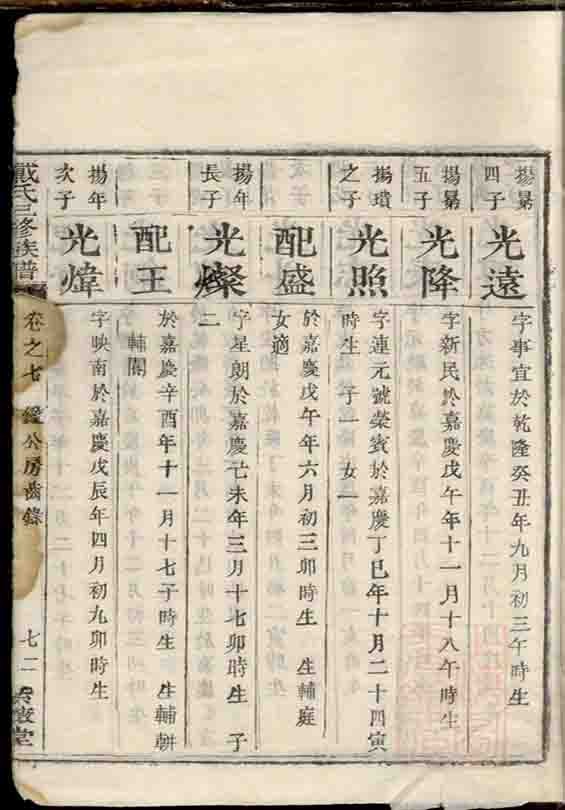 揚暴四子
光遠
字事宜於乾隆癸丑年九月初三午時生
揚暴五子
光降
字新民於嘉慶戊午年十一月十八午時生
揚璝之子
光照
字連元號榮賓於嘉慶丁巳年十月二十四寅
時生 子一 女一
配盛
於嘉慶戊午年六月初三卯時生 生輔庭
女適
揚年長子
光燦
字星朗於嘉慶己未年三月十七卯時生 子
二
配王
於嘉慶辛酉年十一月十七子時生 生輔
輔閣
揚年次子
光煒
字映南於嘉慶戊辰年四月初九卯時生
戴氏三修族譜 卷之七 鑑公房齒錄 七二 堂